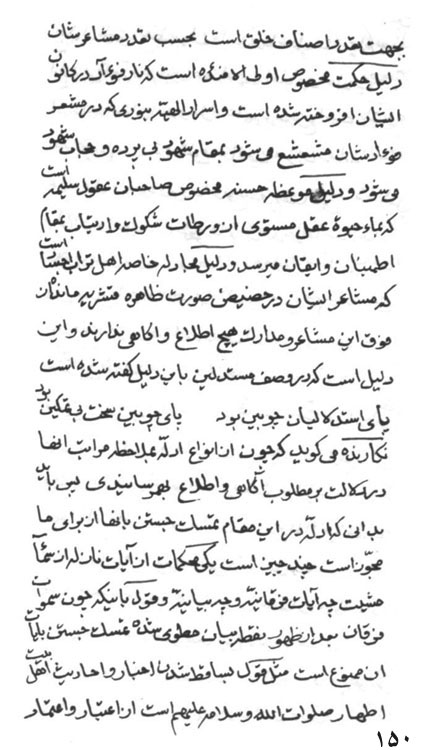 بجهت تعدد اصناف خلق است بحسب تعدد مشاعرشان
دلیل حکمت مخصوص اولی الافئده است که نار فوءآد در کانون
ایشان افروخته شده است و اسرار الهیّه بنوری که در مشعر
فوءادشان مشعشع می‌شود بمقام شهود پی برده و محاب شهود
می‌شود و دلیل موعظه حسنه مخصوص صاحبان عقول سلیمه است
که بماء حیوة عقل مستوی از ورطات شکوک و ارتیاب بمقام
اطمینان و ایقان میرسد و دلیل مجادله خاصه اهل تراب است
که مشاعر ایشان در حضیض صورت ظاهره قشریه مانده‌اند
فوق این مشاعر و مدارک هیچ اطلاع و آگاهی ندارند و این
دلیل است که در وصف مستدلین باین دلیل گفته شده است
پای استدلالیان چوبین بود پای چوبین سخت بی تمکین بود
نگارنده می‌گوید که چون از انواع ادله بملاحظه مراتب آنها
در دلالت بر مطلوب آگاهی و اطلاع بهم رسانیدی پس باید
بدانی که ادله در این مقام تمسک جستن بآنها از برای ما
مجوّز است چند چیز است یکی محکمات از آیات نازله از سماء
مشیت چه آیات فرقانیّه و چه بیانیّه و قول باینکه چون سموات
فرقان بعد از ظهور نقطه بیان مطوی شده تمسک جستن بآیات
آن ممنوع است مثل قول بساقط شدن اخبار و احادیث اهل بیت
اطهار صلوات الله و سلامه علیهم است از اعتبار و اعتماد
۱۵۰